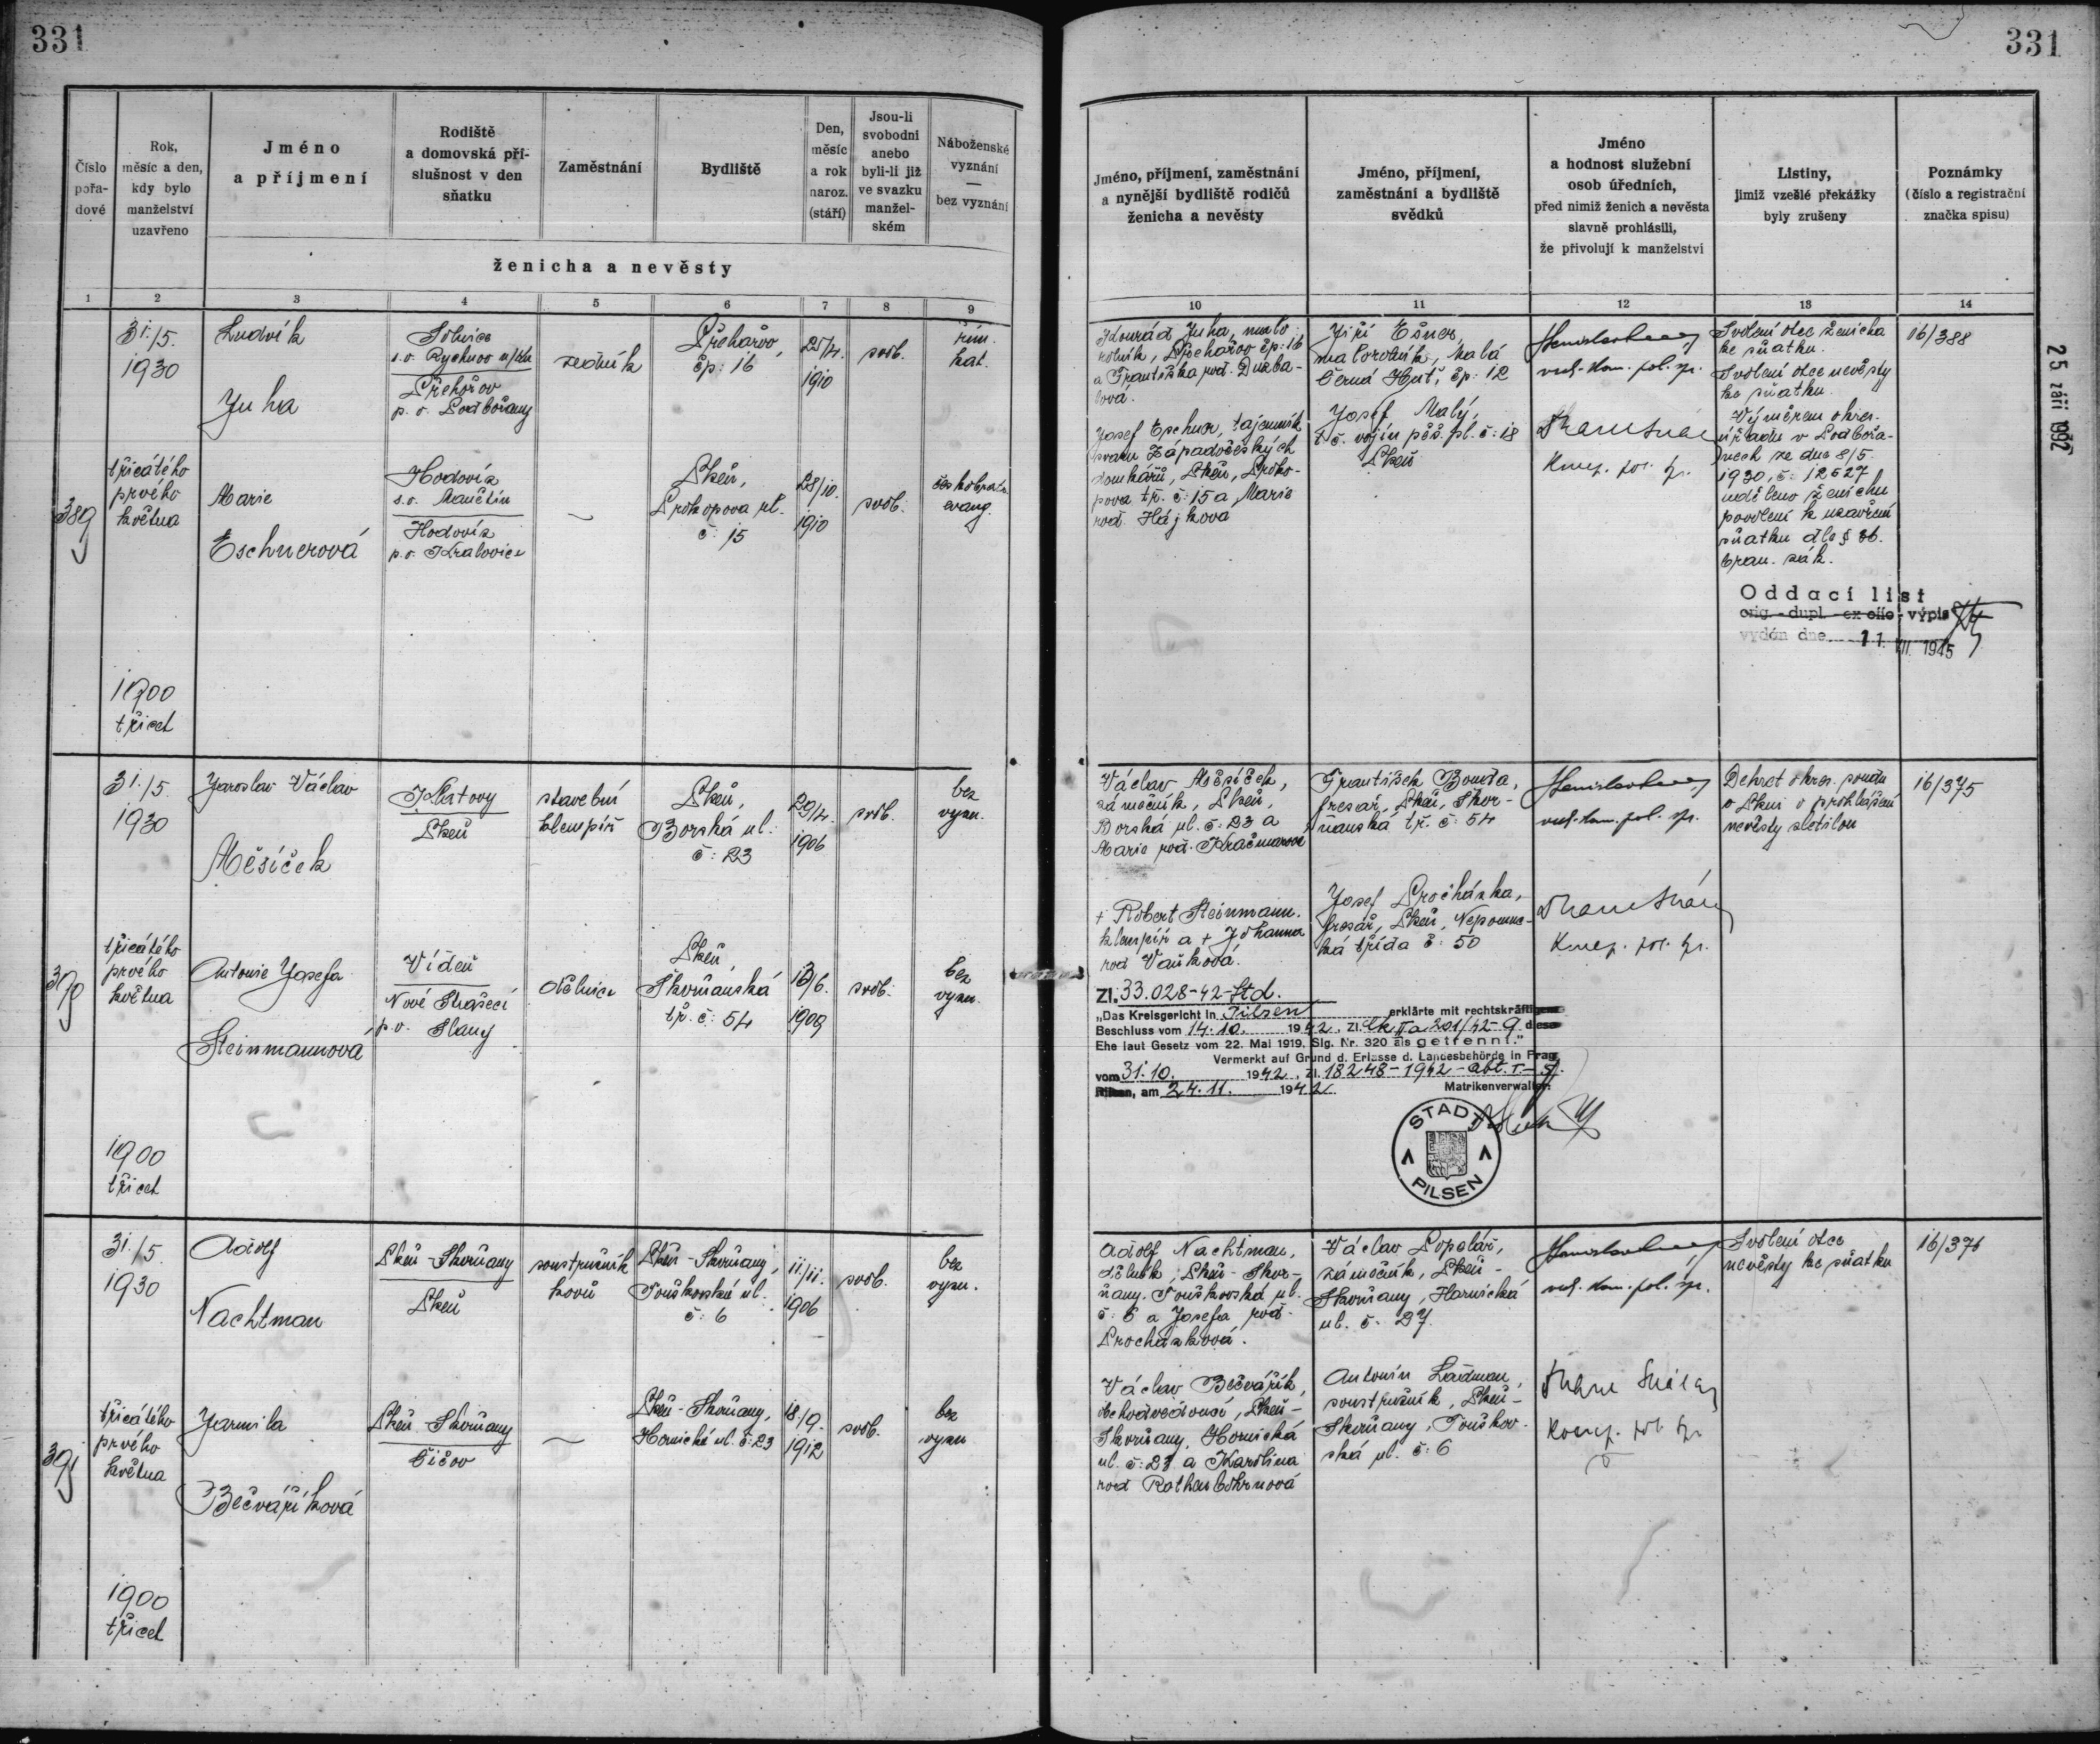 331
331
25 září 1992
Číslo
pořa-
dové
Rok,
měsíc a den,
kdy bylo
manželství
uzavřeno
Jméno
a příjmení
Rodiště
a domovská pří-
slušnost v den
sňatku
Zaměstnání
Bydliště
Den,
měsíc
a rok
naroz.
(stáří)
Jsou-li
svobodni
anebo
byli-li již
ve svazku
manžel-
ském
Náboženské
vyznání
—
bez vyznání
ženicha a nevěsty
Jméno, příjmení, zaměstnání
a nynější bydliště rodičů
ženicha a nevěsty
Jméno, příjmení,
zaměstnání a bydliště
svědků
Jméno
a hodnost služební
osob úředních,
před nimiž ženich a nevěsta
slavně prohlásili,
že přivolují k manželství
Listiny,
jimiž vzešlé překážky
byly zrušeny
Poznámky
(číslo a registrační
značka spisu)
1 2 3 4 5 6 7 8 9
10 11 12 13 14
389
31./5.
1930
třicátého
prvého
května
1900
třicet
Ludvík
Juha
Solnice
s.o. Rychnov n/Kn
Přehořov
p. o. Podbořany
zedník
čp: 16
25/4.
1910
svob.
řím.
kat.
Marie
Eschnerová
Hodovíz
s.o. Manětín
Hodovíz
p.o. Kralovice
Plzeň,
Prokopova ul.
č: 15
28/10.
1910
svob.
českobratr.
evang.
Juha, malo-
rolník, čp: 16
a Františka roz.
Josef Eschner, tajemník
svazu Západočeských
domkářů, Plzeň, Proko-
pova tř. č: 15 a Marie
roz. Hájková
Jiří
malorolník, Malá
Černá Huť, čp: 12
Josef Malý,
t. č. vojín pěš. pl. č: 18
Plzeň
Svolení otce ženicha
ke sňatku.
Svolení otce nevěsty
ke sňatku
Výměrem okres.
úřadu v Podbořa-
nech ze dne 8/5.
1930, č: 12527
uděleno ženichu
povolení k uzavření
sňatku dle §
bran. zák.
Oddací list
orig. - dupl. - ex offo - výpis
vydán dne 11. VII. 1945
16/388
390
31./5.
1930
třicátého
prvého
května
1900
třicet
Jaroslav Václav
Měsíček
Klatovy
Plzeň
stavební
klempíř
Plzeň,
Borská ul.
č: 23
29/4.
1906
svob.
bez
vyzn.
Antonie Josefa
Steinmannová
Vídeň
Nové Strašecí
p.o. Slaný
dělnice
Plzeň,
Skvrňanská
tř. č: 54
13/6.
1909
svob.
bez
vyzn.
Václav Měsíček,
zámečník, Plzeň,
Borská ul. č: 23 a
Marie roz. Kračmarová
+ Robert Steinmann.
klempíř a + Johanna
roz Vaňková.
František Bouda,
fresař, Plzeň, Skvr-
ňanská tř. č: 54
Josef Procházka,
fresař, Plzeň, Nepomuc-
ká třída č: 50
Dekret okres. soudu
v Plzni o prohlášení
nevěsty zletilou
16/375
Zl. 33.028-42-Std.
„Das Kreisgericht in Pilsen erklärte mit rechtskräftigem
Beschluss vom 14.10. 1942, Zl. Ck II a 201/42-9 diese
Ehe laut Gesetz vom 22. Mai 1919, Slg. Nr. 320 als getrennt."
Vermerkt auf Grund d. Erlasse d. Landesbehörde in Prag
vom 31.10. 1942, Zl. 18248-1942-Abt.
Pilsen, am 24.11. 1942 Matrikenverwalter:
STADT
PILSEN
391
31./5.
1930
třicátého
prvého
května
1900
třicet
Adolf
Nachtman
Plzeň-Skvrňany
Plzeň
soustružník
kovů
Plzeň-Skvrňany,
Touškovská ul.
č: 6
11./11.
1906
svob.
bez
vyzn.
Jarmila
Bečváříková
Plzeň-Skvrňany
Čičov
Plzeň-Skvrňany,
Hornická ul. č: 23
18./9.
1912
svob.
bez
vyzn
Adolf Nachtman,
dělník, Plzeň-Skvr-
ňany. Touškovská ul.
č: 6 a Josefa roz.
Procházková.
Václav Bečvářík,
obchodvedoucí, Plzeň-
Skvrňany, Hornická
ul. č: 23 a Karolina
roz
Václav Popelář,
zámečník, Plzeň-
Skvrňany, Hornická
ul. č. 27.
Antonín Ladman,
soustružník, Plzeň-
Skvrňany, Touškov-
ská ul. č: 6
Svolení otce
nevěsty ke sňatku
16/376